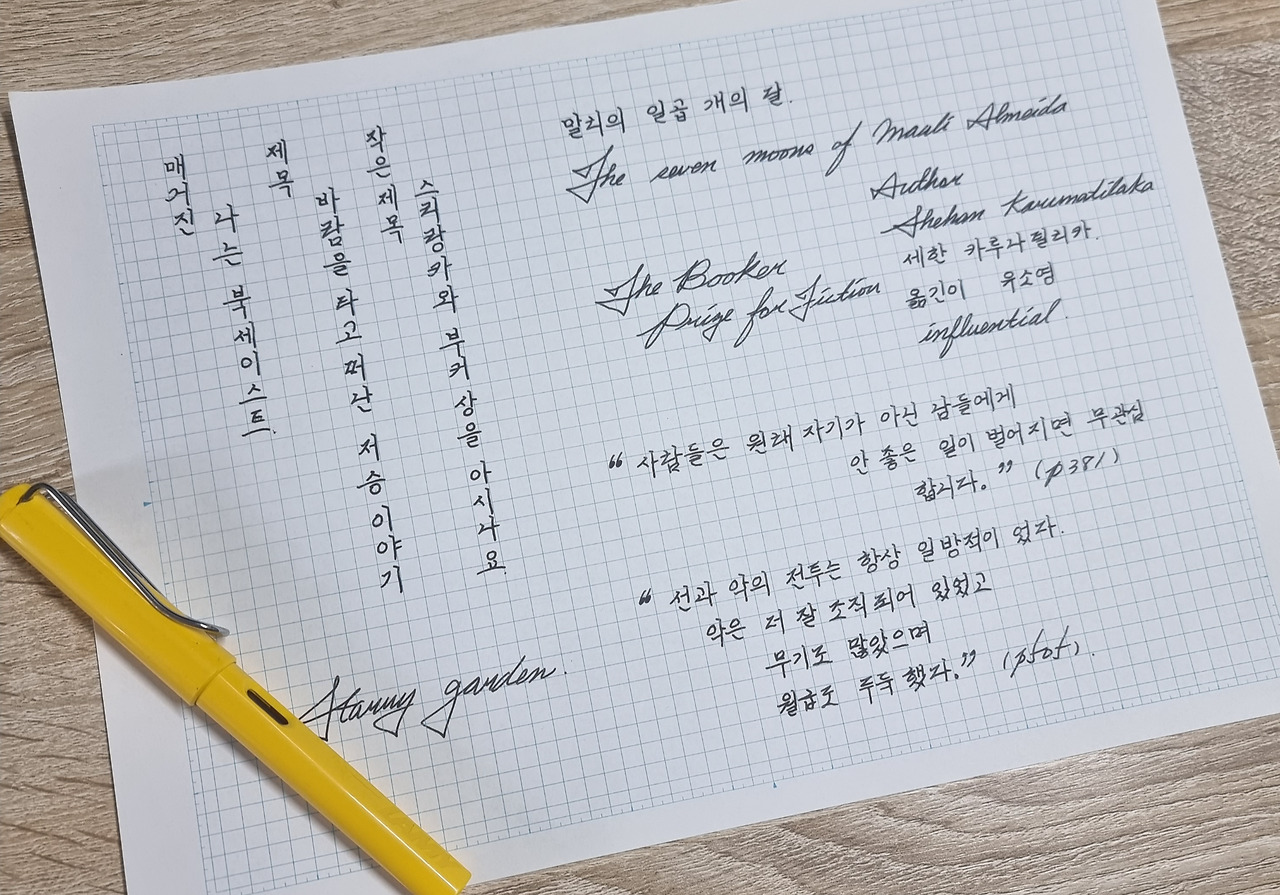 매거진
나는 북세이스트.
제목
바람을 타고 떠난 저승 이야기
작은 제목
스리랑카와 부커상을 아시나요.
말리의 일곱 개의 달.
The seven moons of Maali Almeida
Author
Shehan Karunatilaka
세한 카루나틸리카.
옮긴이 유소영
influential.
The Booker
Prize for Fiction
“사람들은 원래 자기가 아닌 남들에게
안 좋은 일이 벌어지면 무관심
합니다.” (p381)
“선과 악의 전투는 항상 일방적이었다.
악은 더 잘 조직되어 있었고
무기도 많았으며
월급도 두둑했다.”
Starry garden.